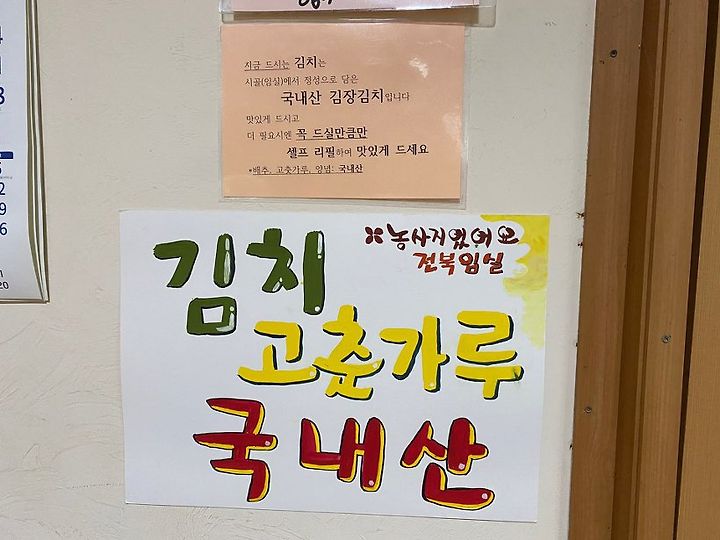 지금 드시는 김치는
시골(임실)에서 정성으로 담은
국내산 김장김치입니다
맛있게 드시고
더 필요시엔 꼭 드실만큼만
셀프 리필하여 맛있게 드세요
*배추, 고춧가루, 양념: 국내산
농사지었어요
전북임실
김치
고춘가루
국내산